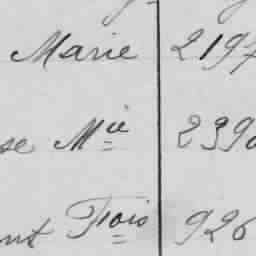 Marie 219
se Mie 239
nt Frois 926